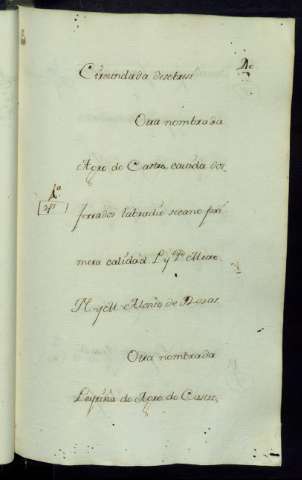 Cirundada desebes
Otra nombrada
Agro de Castro cavida dos
ferrados labradio secano pri
mera calidad L. y P. Mexo
N. y M. Alonso de Rosas
Otra nombrada
Leyriña do Agro de Castro,